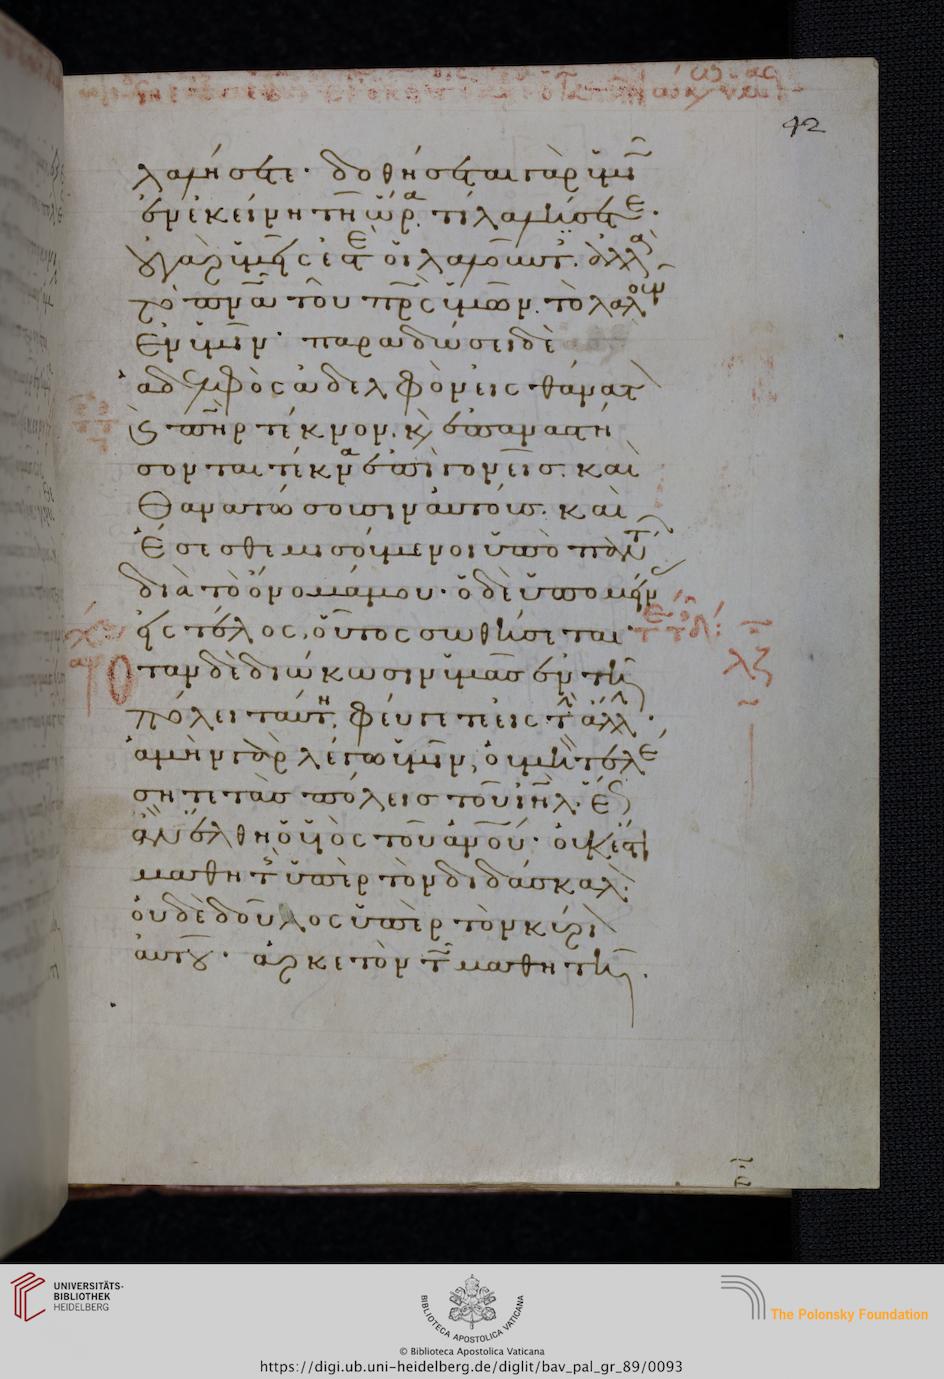 42
λαλήσητε· δοθήσεται γὰρ ὑμῖ
ἐν ἐκείνη τῆ ὥρα τί λαλήσετε·
οὐ γὰρ ὑμεῖς ἐστὲ οἱ λαλοῦντ. ἀλλὰ
τὸ πνᾶ τοῦ πρς ὑμῶν. τὸ λαλοῦν
ἐν ὑμῖν· παραδώσει δὲ
ἀδελφὸς ἀδελφὸν εἰς θάνατ
καὶ πηρ τέκνον. καὶ ἐπαναστή
σονται τέκνα ἐπὶ γονεῖς. καὶ
θανατώσουσιν αὐτούς. καὶ
ἔσεσθε μισούμενοι ὑπὸ πάντ
διὰ τὸ ὄνομά μου· ὁ δὲ ὑπομείν
εἰς τέλος, οὗτος σωθήσεται·
ὅταν δὲ διώκωσιν ὑμᾶς ἐν τῆ
πόλει ταύτη, φεύγετε εἰς τὴν ἄλλ·
ἀμὴν γὰρ λέγω ὑμῖν, οὐ μὴ τελέ
σητε τὰς πόλεις τοῦ ιηλ. ἕως
ἂν ἔλθη ὁ υἱὸς τοῦ ανου· οὐκ ἔστι
μαθητὴς ὑπὲρ τὸν διδάσκαλ.
οὐδὲ δοῦλος ὑπὲρ τὸν κύρι
αὐτοῦ· ἀρκετὸν τῶ μαθητῆ.
λζ
UNIVERSITÄTS-
BIBLIOTHEK
HEIDELBERG
BIBLIOTECA APOSTOLICA VATICANA
The Polonsky Foundation
© Biblioteca Apostolica Vaticana
https://digi.ub.uni-heidelberg.de/diglit/bav_pal_gr_89/0093